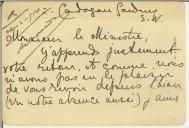 Cadogan Gardens
S.W.
Monsieur le Ministre,
j'apprends justement
votre retour, et comme nous
n'avons pas eu le plaisir
de vous revoir depuis l'hiver
(vu notre absence aussi) j'aime